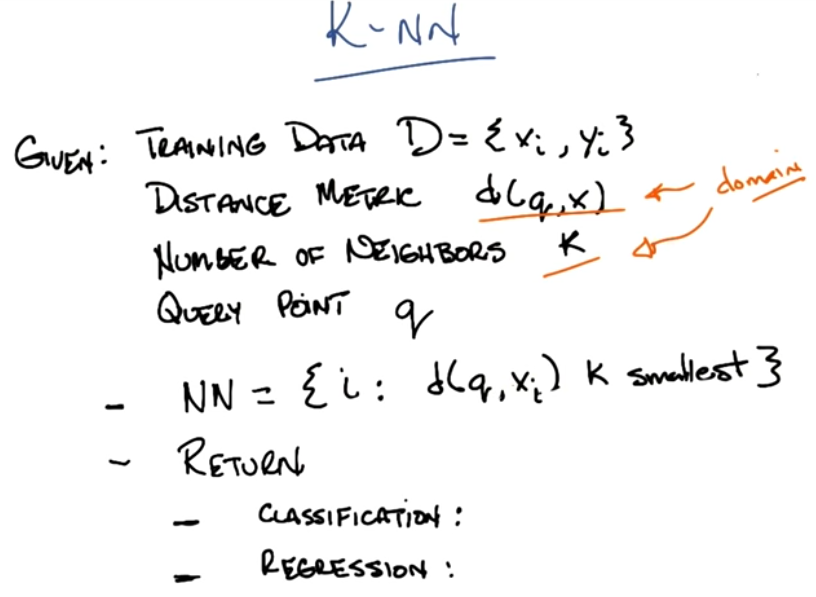 K-NN
GIVEN: TRAINING DATA D = { xi , yi }
DISTANCE METRIC d(q,x) ← domain
NUMBER OF NEIGHBORS K
QUERY POINT q
- NN = { i : d(q,xi) K smallest }
- RETURN
- CLASSIFICATION :
- REGRESSION :